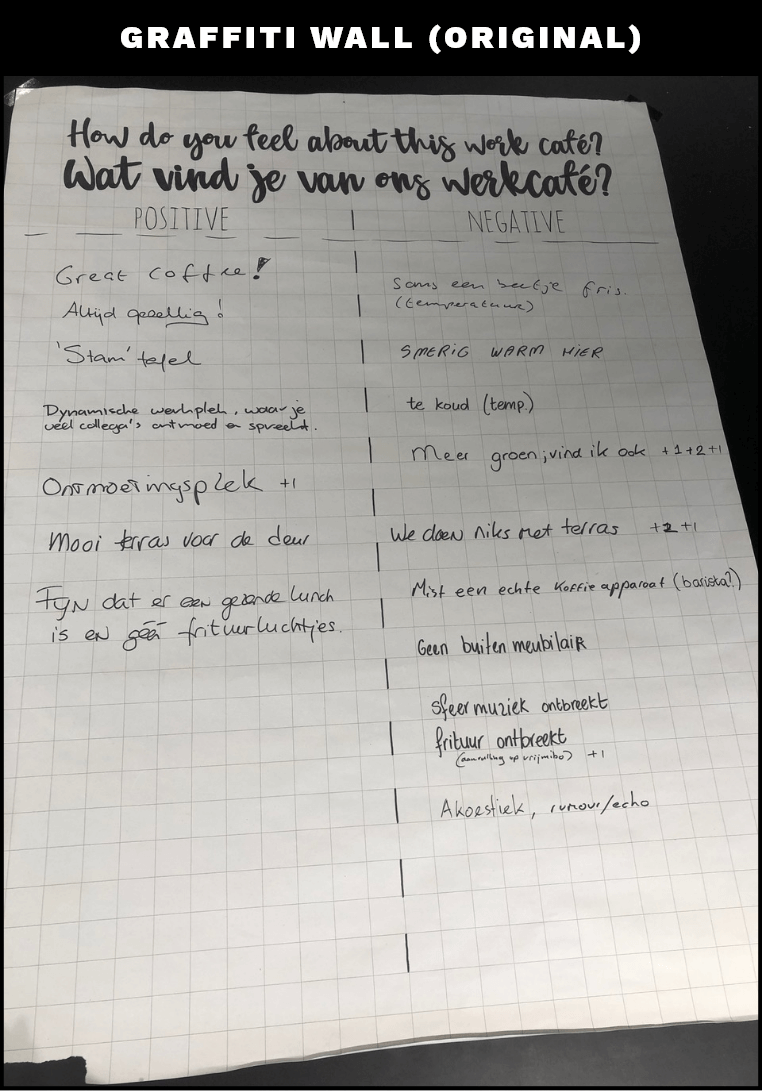 GRAFFITI WALL (ORIGINAL)
How do you feel about this work café?
Wat vind je van ons werkcafé?
POSITIVE
Great coffee!
Altijd gezellig!
'Stam' tafel
Dynamische werkplek, waar je
veel collega's ontmoed en spreekt.
Ontmoetingsplek +1
Mooi terras voor de deur
Fijn dat er een gezonde lunch
is en géén frituurluchtjes.
NEGATIVE
Soms een beetje fris.
(temperatuur)
SMERIG WARM HIER
te koud (temp.)
Meer groen; vind ik ook +1+2+1
We doen niks met terras +2+1
Mist een echte koffie apparaat (barista?)
Geen buiten meubilair
sfeermuziek ontbreekt
frituur ontbreekt
(aanvulling op vrijmibo) +1
Akoestiek, rumour/echo